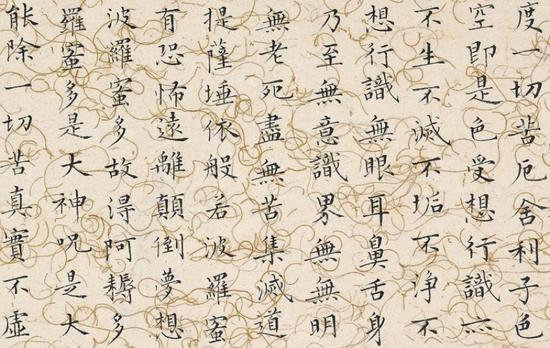 度一切苦厄舍利子色
空即是色受想行識亦
不生不滅不垢不淨不
想行識無眼耳鼻舌身
乃至無意識界無無明
無老死盡無苦集滅道
提薩埵依般若波羅蜜
有恐怖遠離顛倒夢想
波羅蜜多故得阿耨多
羅蜜多是大神呪是大
能除一切苦真實不虛